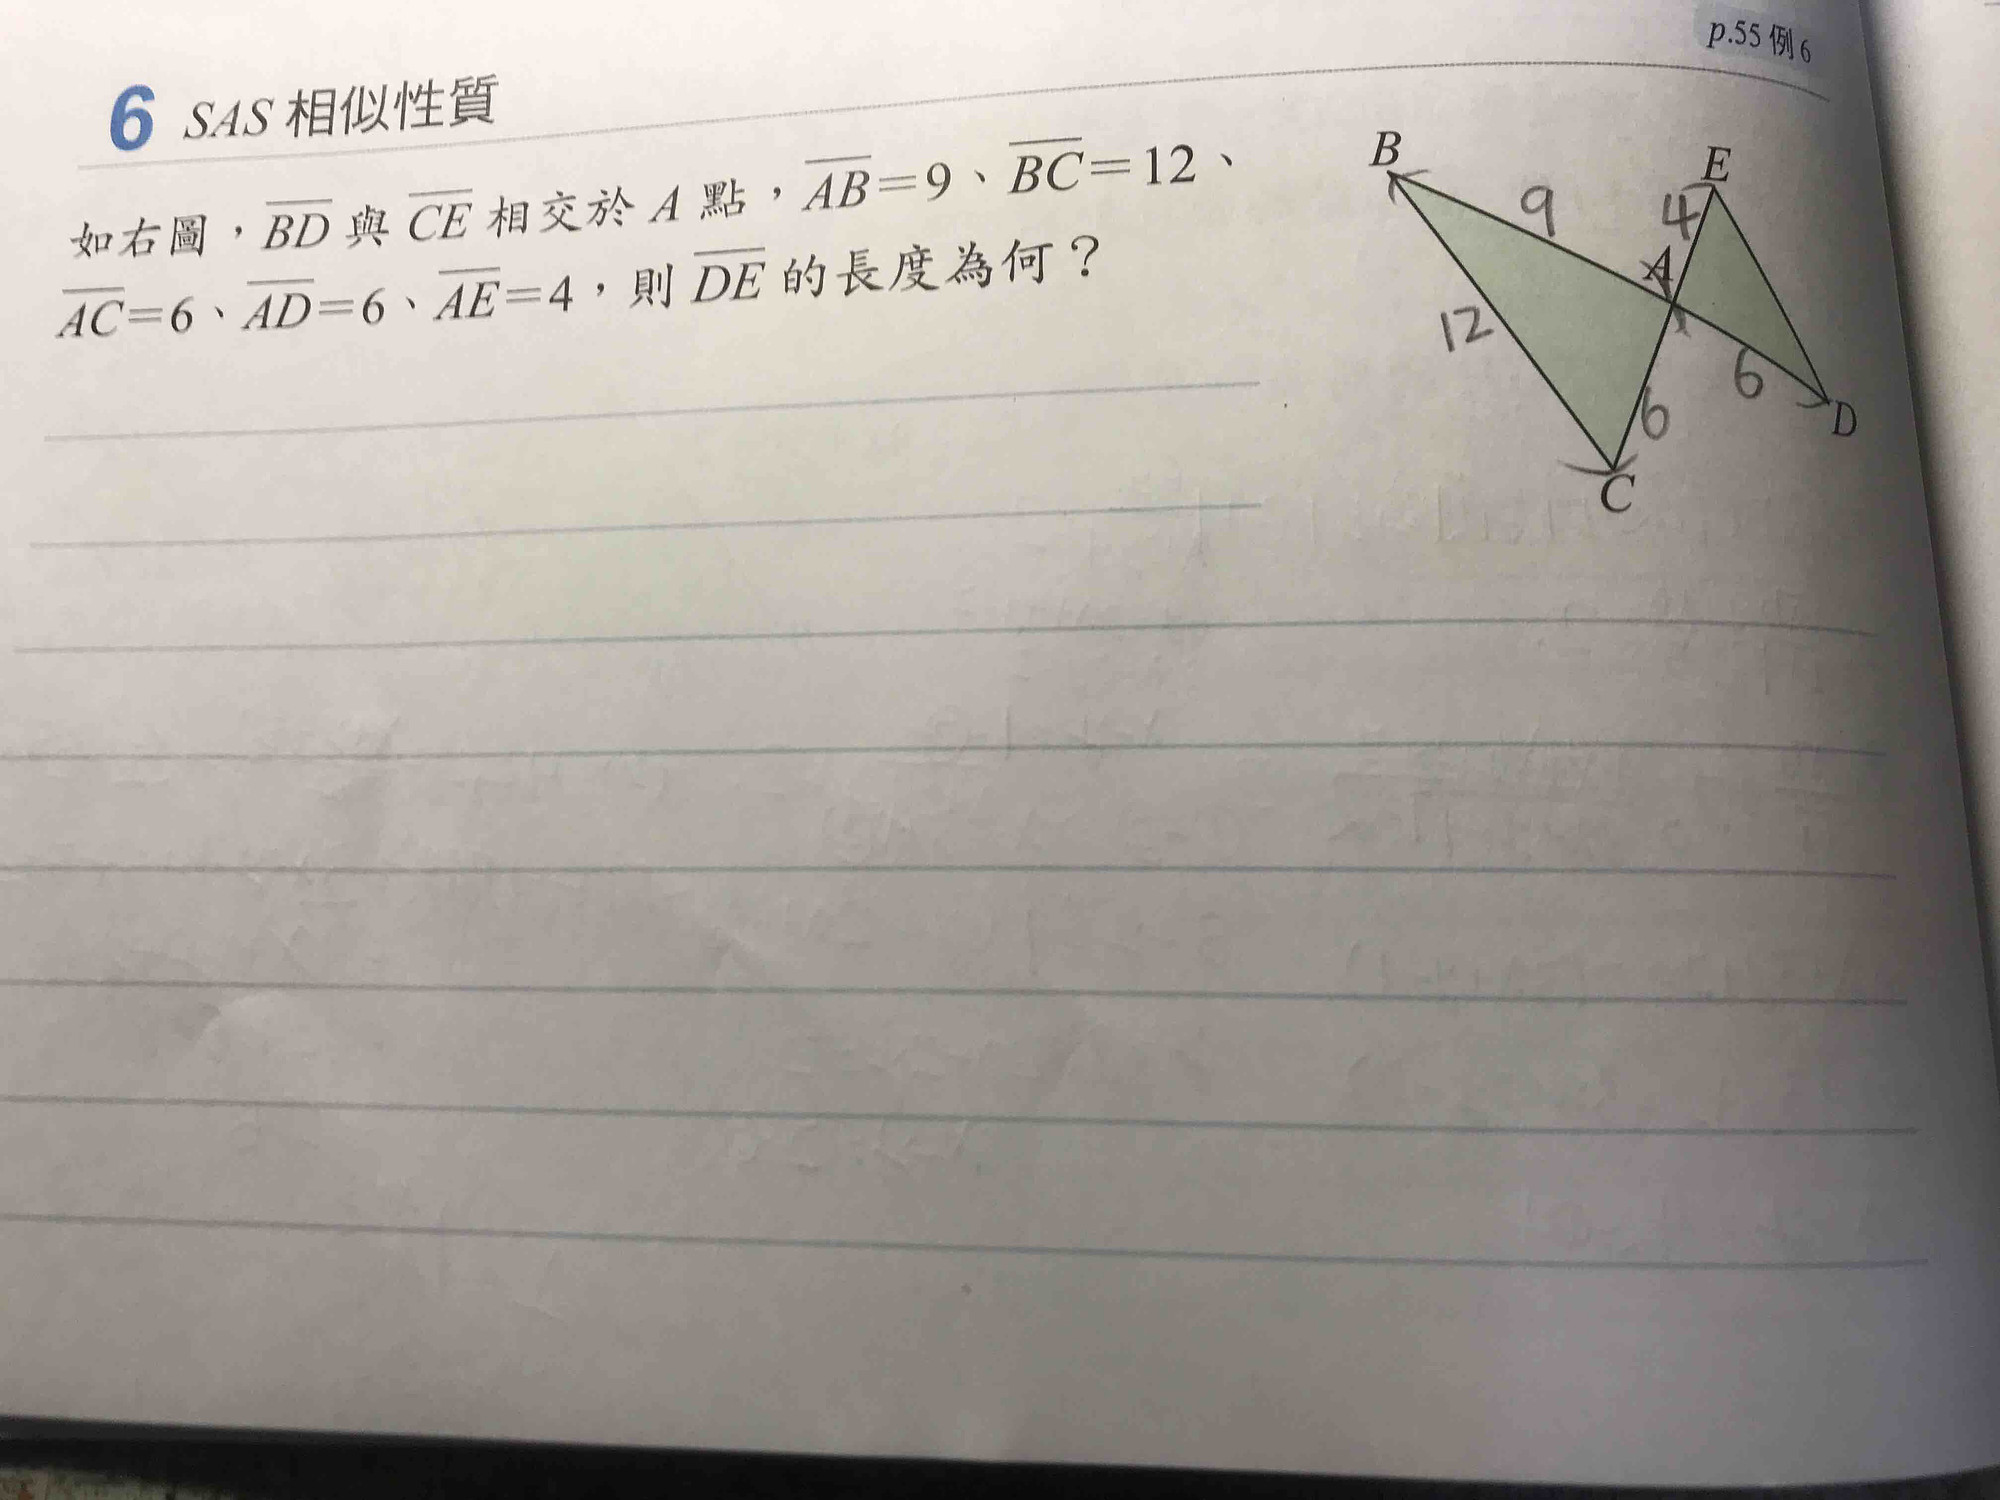 p.55 例6
6 SAS 相似性質
如右圖，BD 與 CE 相交於 A 點，AB=9、BC=12、
AC=6、AD=6、AE=4，則 DE 的長度為何？
B
E
9
4
A
12
6
6
D
C